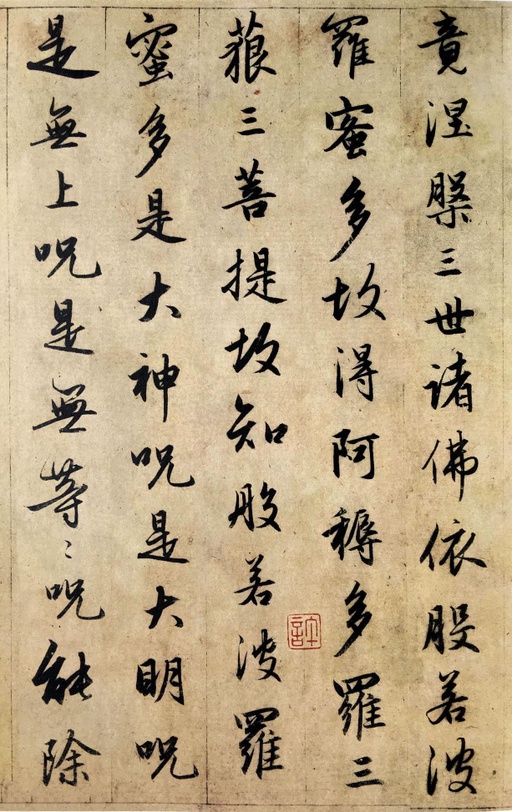 竟涅槃三世諸佛依般若波
羅蜜多故得阿耨多羅三
藐三菩提故知般若波羅
蜜多是大神呪是大明呪
是無上呪是無等〻呪能除